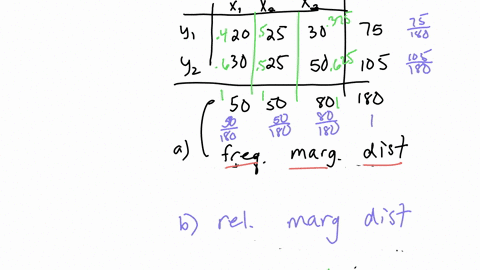 x₁ x₂ x₃
y₁ .4 20 .5 25 30 .375 75 75/180
y₂ .6 30 .5 25 50 .625 105 105/180
1 50 1 50 80 1 180
50/180 50/180 80/180 1
a) freq. marg. dist
b) rel. marg dist